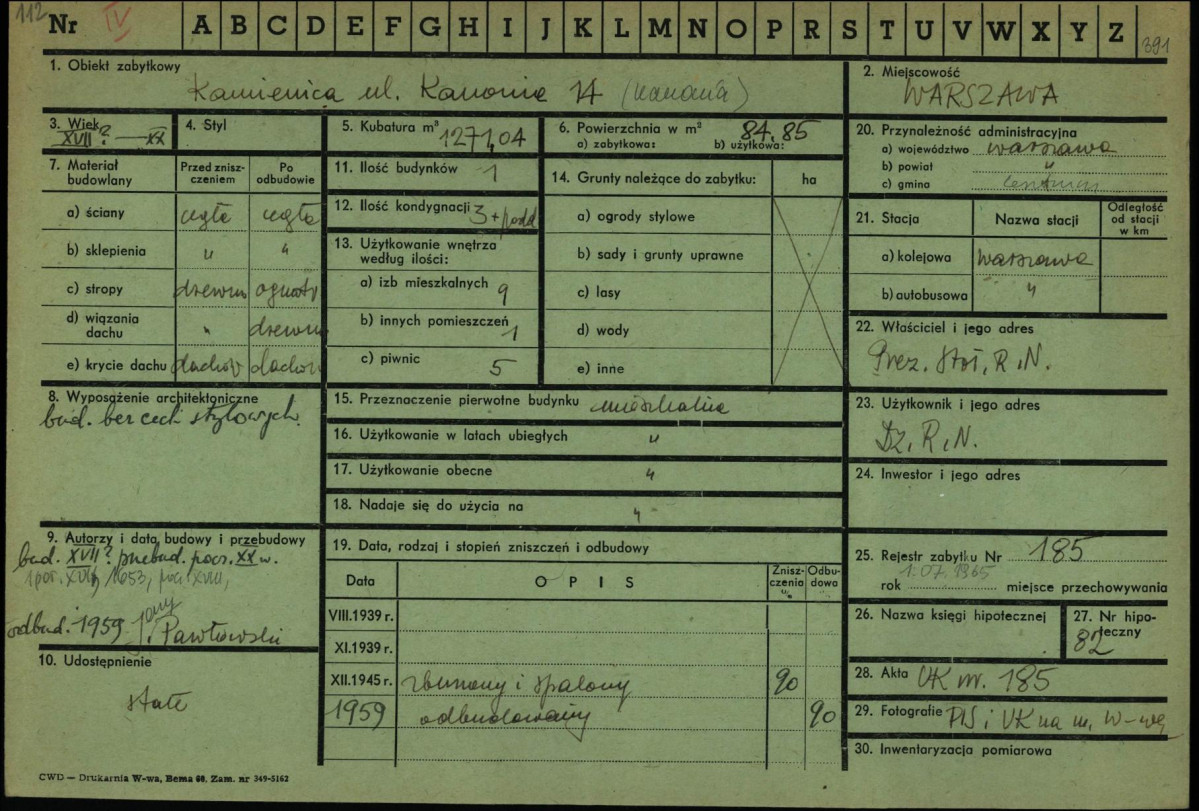 112
Nr IV A B C D E F G H I J K L M N O P R S T U V W X Y Z 391
1. Obiekt zabytkowy
Kamienica ul. Kanonie 14
2. Miejscowość
WARSZAWA
3. Wiek
XVII? — XX
4. Styl
5. Kubatura m³
1271,04
6. Powierzchnia w m² 84.85
a) zabytkowa: b) użytkowa:
20. Przynależność administracyjna
a) województwo warszawa
b) powiat "
c) gmina centrum
7. Materiał budowlany
Przed zniszczeniem
Po odbudowie
a) ściany cegła cegła
b) sklepienia " "
c) stropy drewn ogniotr
d) wiązania dachu " drewn
e) krycie dachu dachów dachów
11. Ilość budynków 1
12. Ilość kondygnacji 3 + podd
13. Użytkowanie wnętrza według ilości:
a) izb mieszkalnych 9
b) innych pomieszczeń 1
c) piwnic 5
14. Grunty należące do zabytku: ha
a) ogrody stylowe
b) sady i grunty uprawne
c) lasy
d) wody
e) inne
21. Stacja Nazwa stacji Odległość od stacji w km
a) kolejowa Warszawa
b) autobusowa "
22. Właściciel i jego adres
Prez. Stoł. R.N.
8. Wyposżenie architektoniczne
bud. bez cech stylowych
15. Przeznaczenie pierwotne budynku mieszkalne
16. Użytkowanie w latach ubiegłych "
17. Użytkowanie obecne "
18. Nadaje się do użycia na "
23. Użytkownik i jego adres
Dz. R.N.
24. Inwestor i jego adres
9. Autorzy i data budowy i przebudowy
bud. XVII? przebud. pocz. XX w.
1653,
odbud. 1959 Pawłowski
10. Udostępnienie
stałe
19. Data, rodzaj i stopień zniszczeń i odbudowy
Data OPIS Zniszczenia % Odbudowa
VIII.1939 r.
XI.1939 r.
XII.1945 r. zburzony i spalony 90
1959 odbudowany 90
25. Rejestr zabytku Nr 185
1.07.1965
rok miejsce przechowywania
26. Nazwa księgi hipotecznej
27. Nr hipoteczny
82
28. Akta UK nr. 185
29. Fotografie PIS i UK na m. W-wę
30. Inwentaryzacja pomiarowa
CWD — Drukarnia W-wa, Bema 60. Zam. nr 349-5162